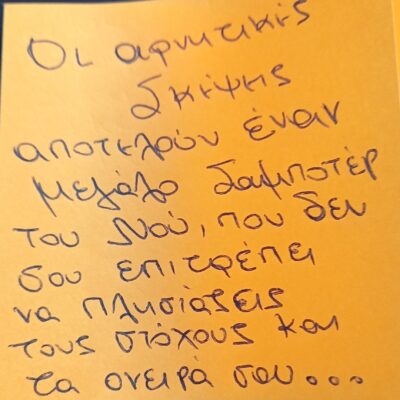 Οι αρνητικές
Σκέψης
αποτελούν έναν
μεγάλο σαμποτέρ
του Νού, που δεν
σου επιτρέπει
να πλησιάσεις
τους στόχους και
τα ονειρά σου...